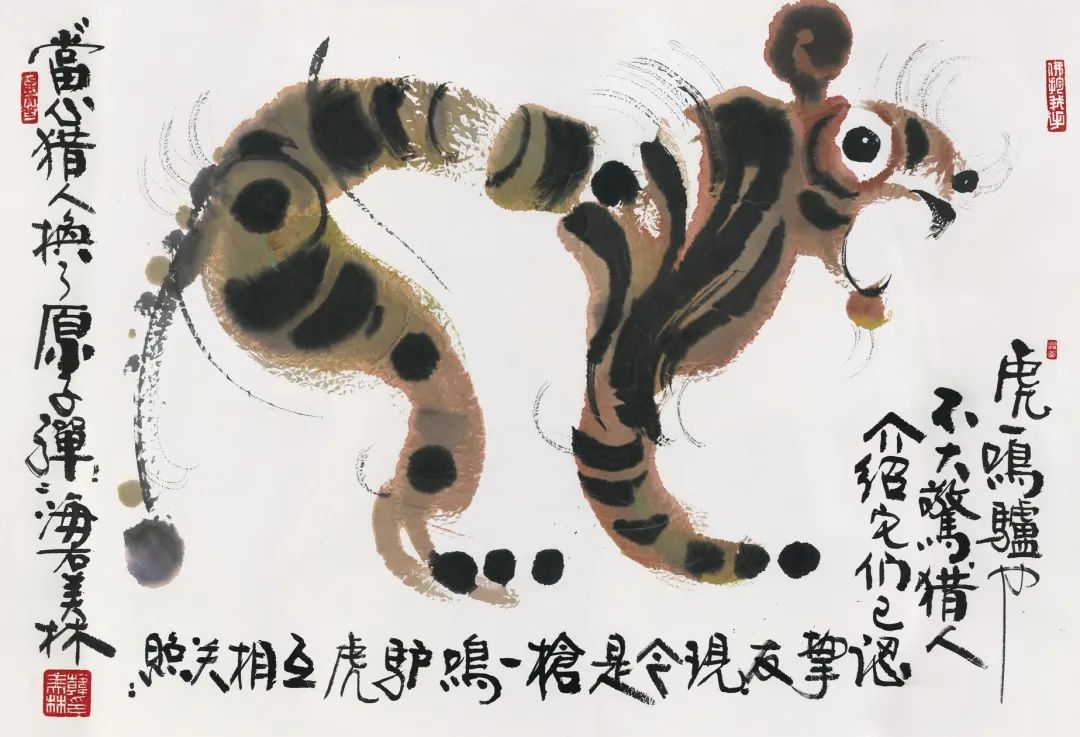 虎一鳴驢也
不大驚猎人
介绍它们已
認摯友現今是槍一鳴驴虎互相关照
當心猎人換了原子彈海右美林